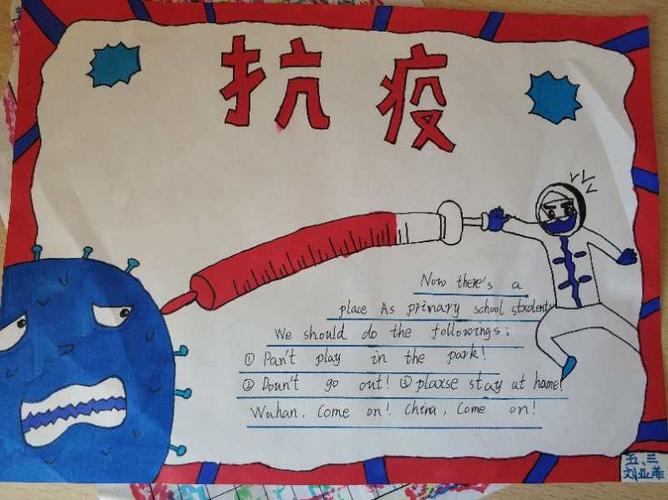 抗疫
Now there's a
place As primary school students
We should do the followings:
① Pan't play in the park!
② Doun't go out! ③ plaxse stay at hame!
Wuhan, Come on! China, Come on!
五、三
刘亚